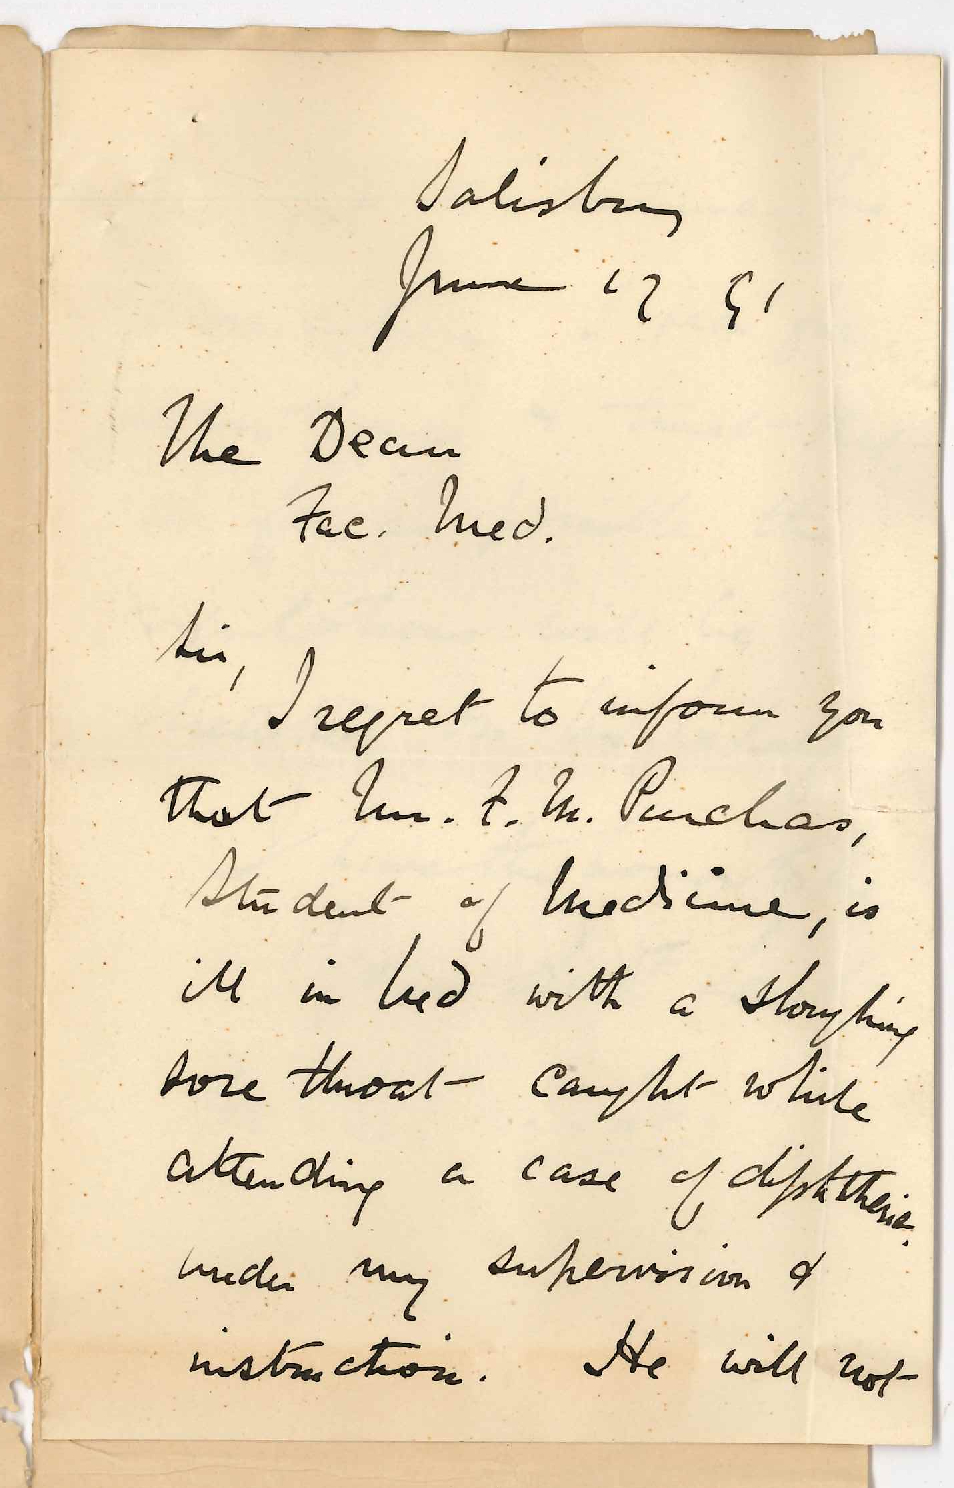 Salisbury
June 17 91
The Dean
Fac. Med.
Sir,
I regret to inform you
that Mr. F. M. Purchas,
Student of Medicine, is
ill in bed with a sloughing
sore throat caught while
attending a case of diphtheria
under my supervision &
instruction. He will not